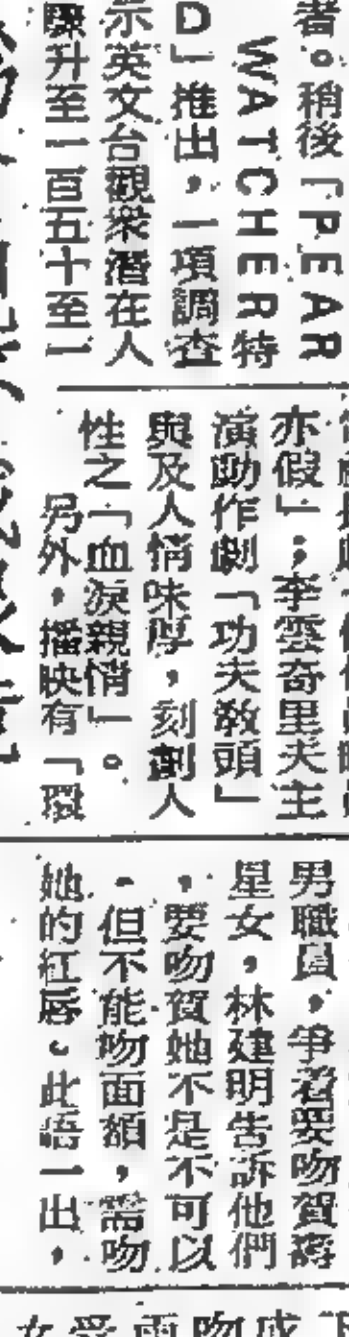 者。稍後「PEAR
WATCHER特
D」推出，一項調查
示英文台觀衆潛在人
驟升至一百五十至一
亦假」；李雲奇里夫主
演動作劇「功夫敎頭」
與及人情味厚，刻劃人
性之「血淚親情」。
另外，播映有「環
男職員，爭着要吻賀壽
星女，林建明告訴他們
，要吻賀她不是不可以
，但不能吻面額，需吻
她的紅唇。此語一出，